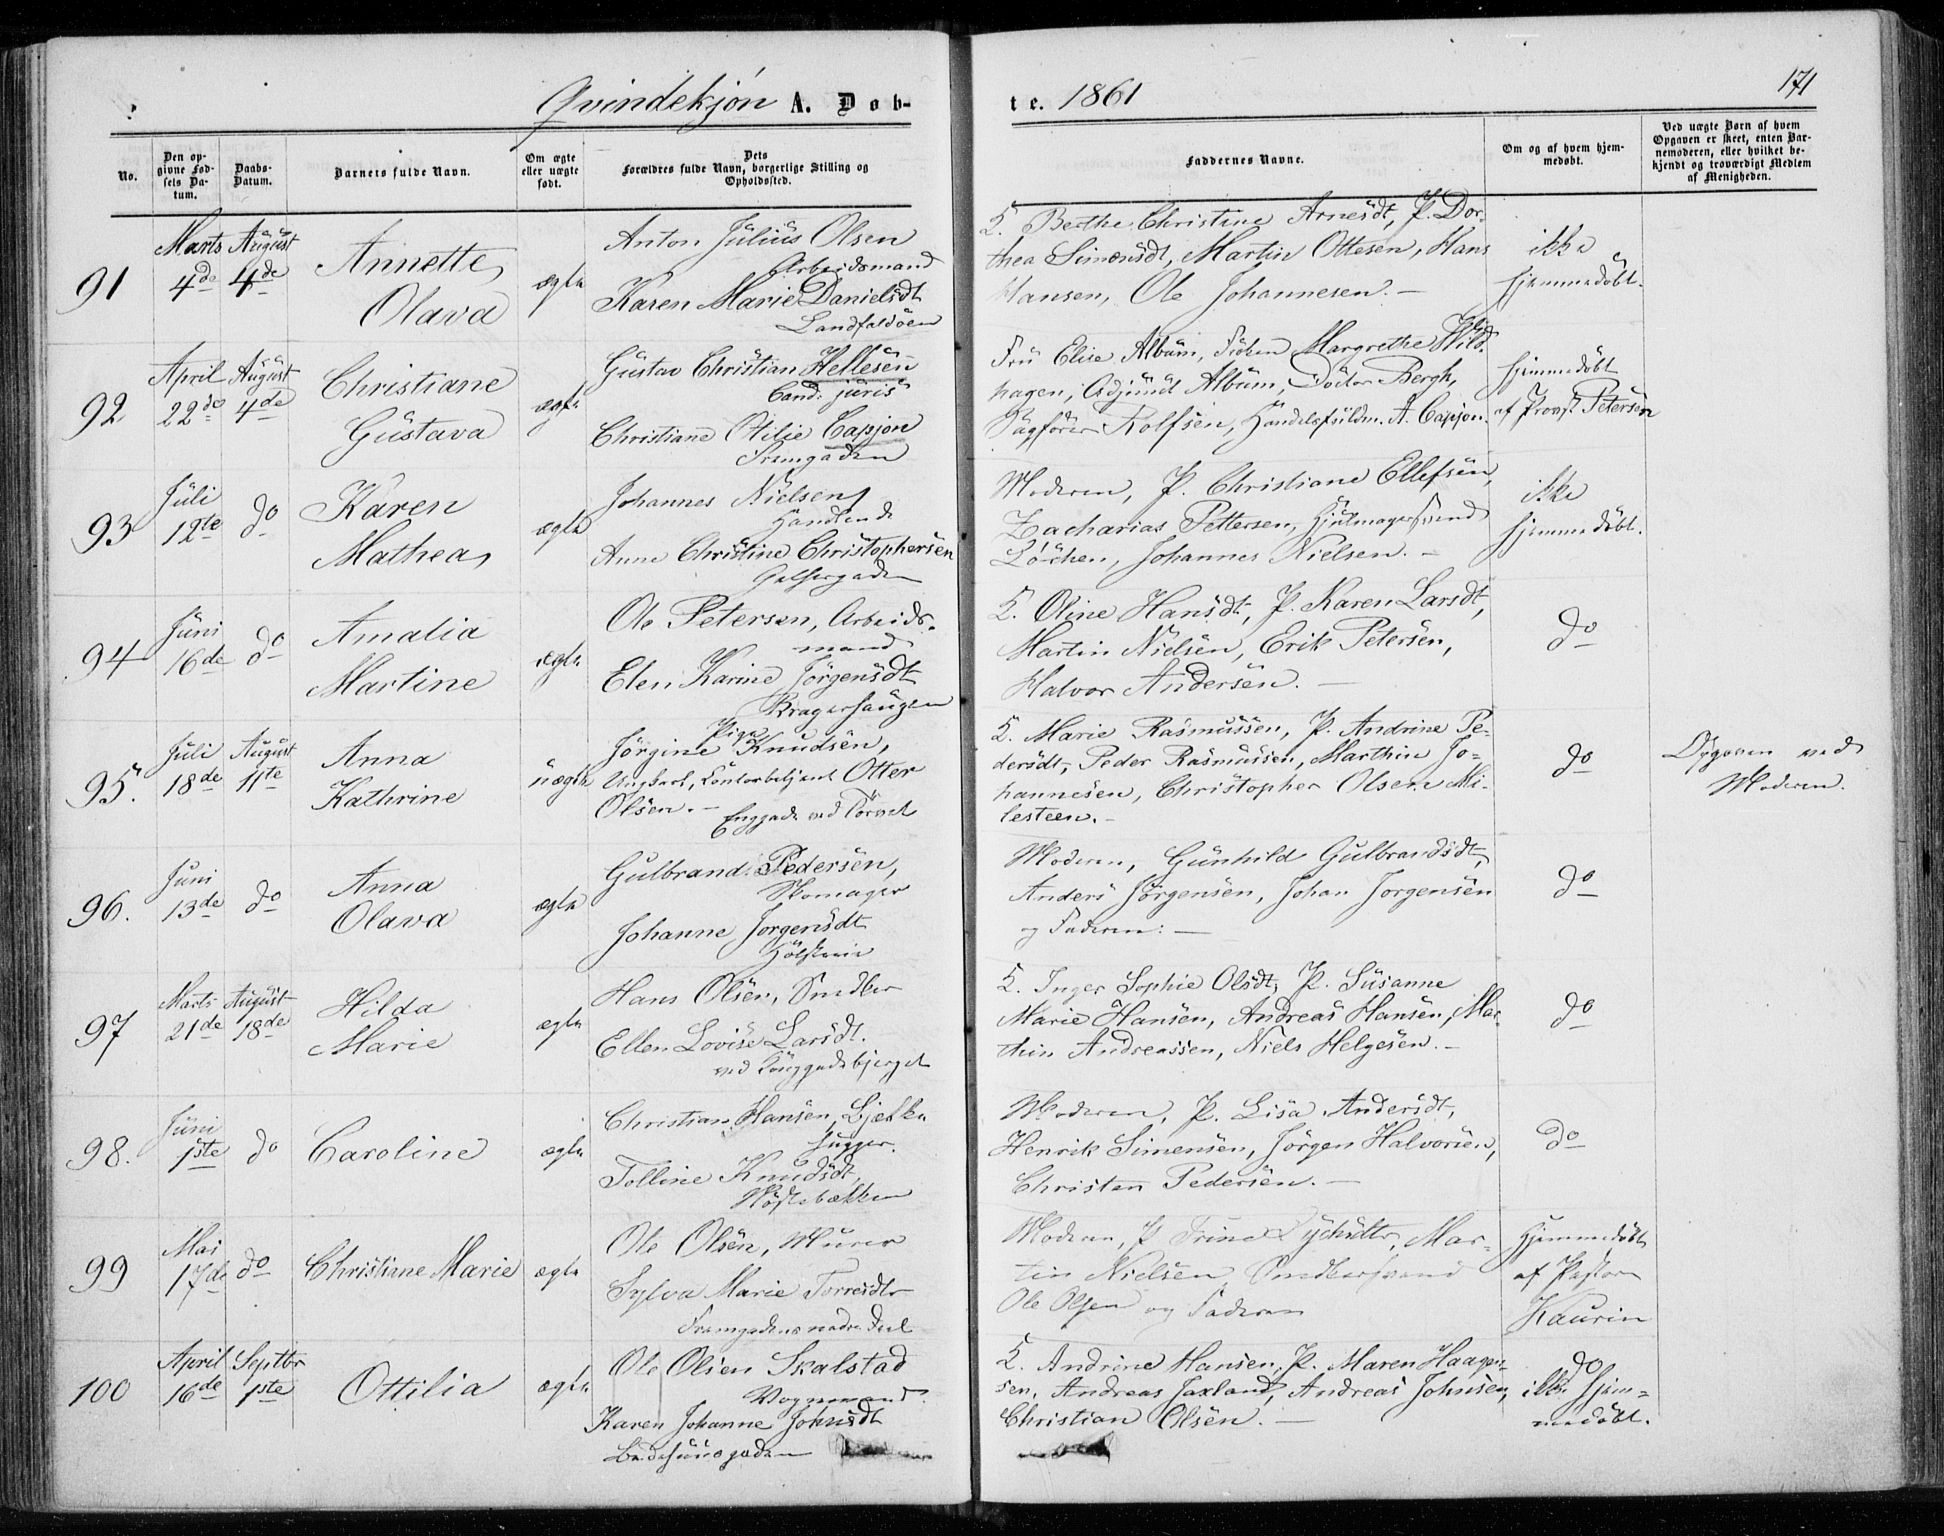 Qvindekjøn A. Døb-
te. 1861
171
No.
Den op-
givne Fød-
sels Da-
tum.
Daabs-
Datum.
Barnets fulde Navn.
Om ægte
eller uægte
født.
Dets
Forældres fulde Navn, borgerlige Stilling og
Opholdssted.
Faddernes Navne.
Om og af hvem hjem-
medøbt.
Ved uægte Børn af hvem
Opgaven er skeet, enten Bar-
nemoderen, eller hvilket be-
kjendt og troværdigt Medlem
af Menigheden.
91
Marts
4de
August
4de
Annette
Olava
ægte
Anton Julius Olsen
Arbeidsmand
Karen Marie Danielsdt
Landfaldøen
K. Berthe Christine Arnesdt, P. Dor-
thea Simensdt, Martin Ottesen, Hans
Hansen, Ole Johannesen. —
ikke
hjemmedøbt.
92
April
22de
August
4de
Christiane
Gustava
ægte
Gustav Christian Hellesen
Cand: juris
Christiane Otilie Capjon
Strømgaden
Fru Elise Album, Frøken Margrethe Wild-
hagen, Adjunct Album, Doctor Bergh,
Sagfører Rolfsen, Handelsfuldm. A. Capjon.
hjemmedøbt
af Provst Petersen
93
Juli
12te
do
Karen
Mathea
ægte
Johannes Nielsen
Handlende
Anne Christine Christophersen
Moderen, P. Christiane Ellefsen,
Zacharias Pettersen, Hjulmagersvend
Løchen, Johannes Nielsen. —
ikke
hjemmedøbt.
94
Juni
16de
do
Amalia
Martine
ægte
Ole Petersen, Arbeids-
mand
Elen Karine Jörgensdt
Bragerhaugen
K. Oline Hansdt, P. Karen Larsdt,
Martin Nielsen, Erik Petersen,
Halvor Andersen. —
do
95.
Juli
18de
August
11te
Anna
Kathrine
uægte
Pige
Jörgine Knudsen,
Ungkarl, Contorbetjent Otter
Olsen. —
Enggade ved Torvet
K. Marie Rasmussen, P. Andrine Pe-
dersdt, Peder Rasmussen, Marthin Jo-
hannesen, Christopher Olsen Mi-
lesteen. —
do
Opgaven ved
Moderen.
96.
Juni
13de
do
Anna
Olava
ægte
Gulbrand Pedersen,
Skomager
Johanne Jorgensdt
Moderen, Gunhild Gulbrandsdt,
Anders Jörgensen, Johan Jorgensen
og Faderen: —
do
97
Marts
21de
August
18de
Hilda
Marie
ægte
Hans Olsen, Snedker
Ellen Lovise Larsdt.
K. Inger Sophie Olsdt, P. Susanne
Marie Hansen, Andreas Hansen, Mar-
thin Andreassen, Niels Helgesen. —
do
98.
Juni
1ste
do
Caroline
ægte
Christian Hansen, Bjælke
hugger.
Tolline Knudsdt,
Høstebækken
Moderen, P. Lisa Andersdt,
Henrik Simensen, Jörgen Halvorsen,
Christen Pedersen. —
do
99
Mai
17de
do
Christiane Marie
ægte
Ole Olsen, Murer
Sylva Marie Torresdtr
Strømgadens nedre Deel
Moderen, P. Trine, Mar-
tin Nielsen Snedkersvend
Ole Olsen og Faderen
Hjemmedøbt
af Pastor
Kaurin
100
April
16de
Septbr
1ste
Ottilia
ægte
Ole Olsen Skalstad
Vognmand.
Karen Johanne Johnsdt
K. Andrine Hansen, P. Maren Haagen-
sen, Andreas Jaxland, Andreas Johnsen,
Christian Olsen. —
do
ikke hjem-
medøbt.